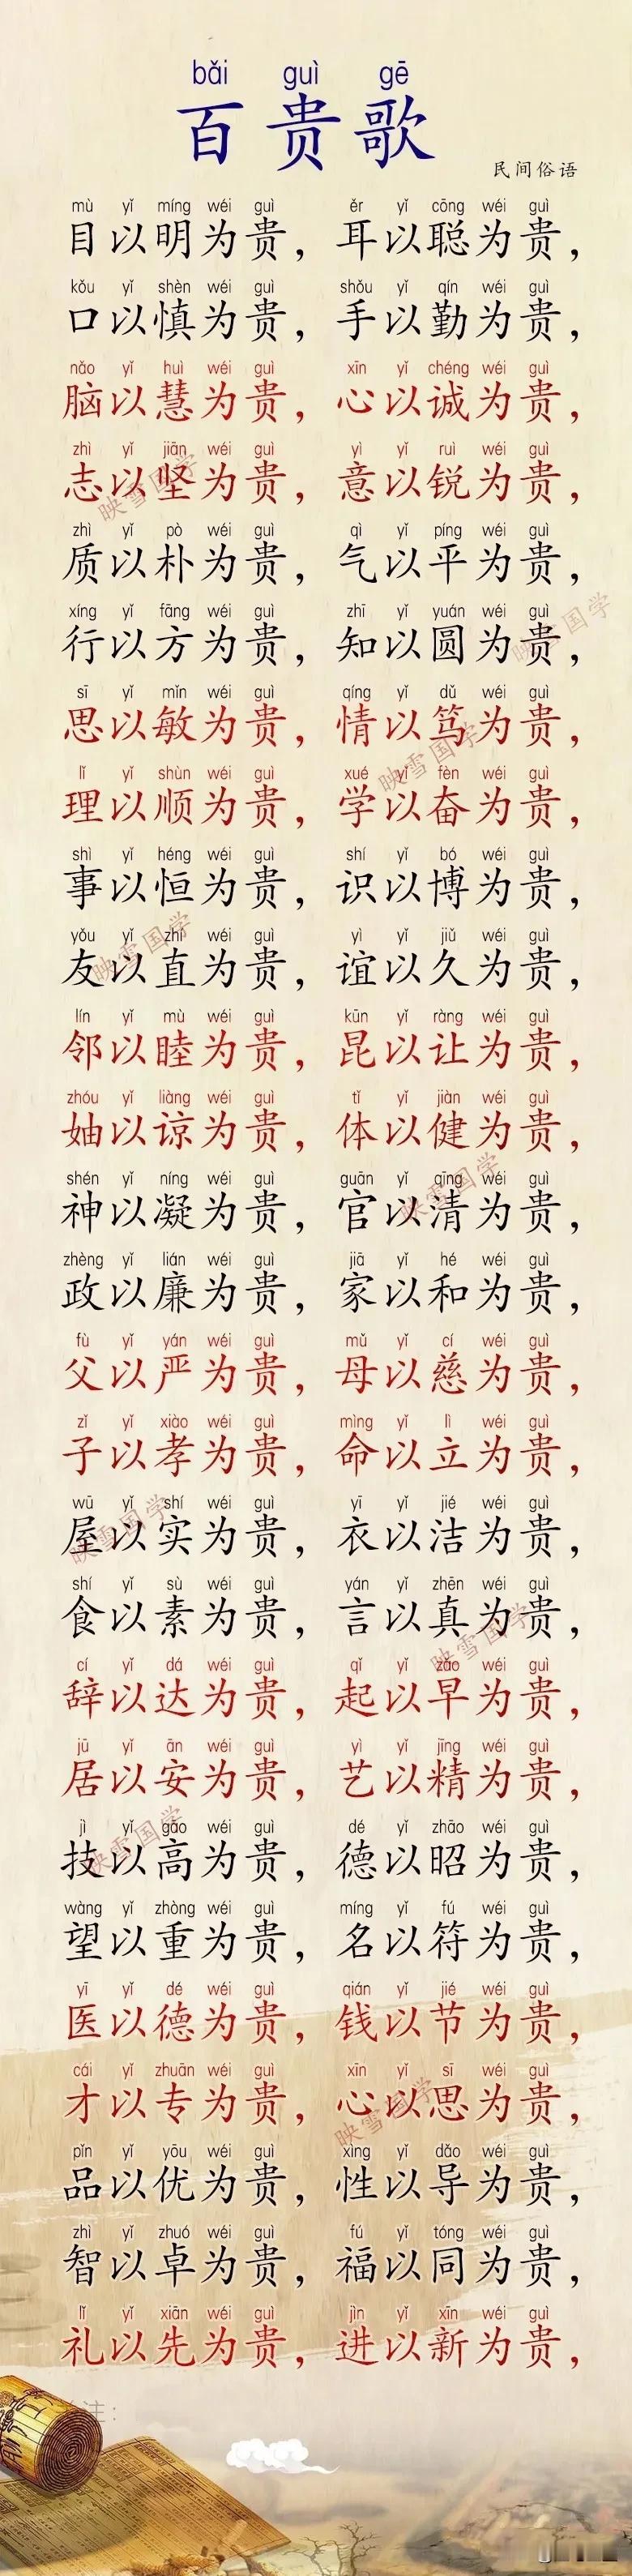 bǎi guì gē
百贵歌
民间俗语
mù yǐ míng wéi guì ěr yǐ cōng wéi guì
目以明为贵，耳以聪为贵，
kǒu yǐ shèn wéi guì shǒu yǐ qín wéi guì
口以慎为贵，手以勤为贵，
nǎo yǐ huì wéi guì xīn yǐ chéng wéi guì
脑以慧为贵，心以诚为贵，
zhì yǐ jiān wéi guì yì yǐ ruì wéi guì
志以坚为贵，意以锐为贵，
zhì yǐ pò wéi guì qì yǐ píng wéi guì
质以朴为贵，气以平为贵，
xíng yǐ fāng wéi guì zhī yǐ yuán wéi guì
行以方为贵，知以圆为贵，
sī yǐ mǐn wéi guì qíng yǐ dǔ wéi guì
思以敏为贵，情以笃为贵，
lǐ yǐ shùn wéi guì xué yǐ fèn wéi guì
理以顺为贵，学以奋为贵，
shì yǐ héng wéi guì shí yǐ bó wéi guì
事以恒为贵，识以博为贵，
yǒu yǐ zhí wéi guì yì yǐ jiǔ wéi guì
友以直为贵，谊以久为贵，
lín yǐ mù wéi guì kūn yǐ ràng wéi guì
邻以睦为贵，昆以让为贵，
zhóu yǐ liàng wéi guì tǐ yǐ jiàn wéi guì
妯以谅为贵，体以健为贵，
shén yǐ níng wéi guì guān yǐ qīng wéi guì
神以凝为贵，官以清为贵，
zhèng yǐ lián wéi guì jiā yǐ hé wéi guì
政以廉为贵，家以和为贵，
fù yǐ yán wéi guì mǔ yǐ cí wéi guì
父以严为贵，母以慈为贵，
zǐ yǐ xiào wéi guì mìng yǐ lì wéi guì
子以孝为贵，命以立为贵，
wū yǐ shí wéi guì yī yǐ jié wéi guì
屋以实为贵，衣以洁为贵，
shí yǐ sù wéi guì yán yǐ zhēn wéi guì
食以素为贵，言以真为贵，
cí yǐ dá wéi guì qǐ yǐ zǎo wéi guì
辞以达为贵，起以早为贵，
jū yǐ ān wéi guì yì yǐ jīng wéi guì
居以安为贵，艺以精为贵，
jì yǐ gāo wéi guì dé yǐ zhāo wéi guì
技以高为贵，德以昭为贵，
wàng yǐ zhòng wéi guì míng yǐ fú wéi guì
望以重为贵，名以符为贵，
yī yǐ dé wéi guì qián yǐ jié wéi guì
医以德为贵，钱以节为贵，
cái yǐ zhuān wéi guì xīn yǐ sī wéi guì
才以专为贵，心以思为贵，
pǐn yǐ yōu wéi guì xìng yǐ dǎo wéi guì
品以优为贵，性以导为贵，
zhì yǐ zhuó wéi guì fú yǐ tóng wéi guì
智以卓为贵，福以同为贵，
lǐ yǐ xiān wéi guì jìn yǐ xīn wéi guì
礼以先为贵，进以新为贵，
注：
映雪国学
映雪国学
映雪国学
映雪国学
映雪国学
映雪国学
映雪国学
映雪国学
映雪国学